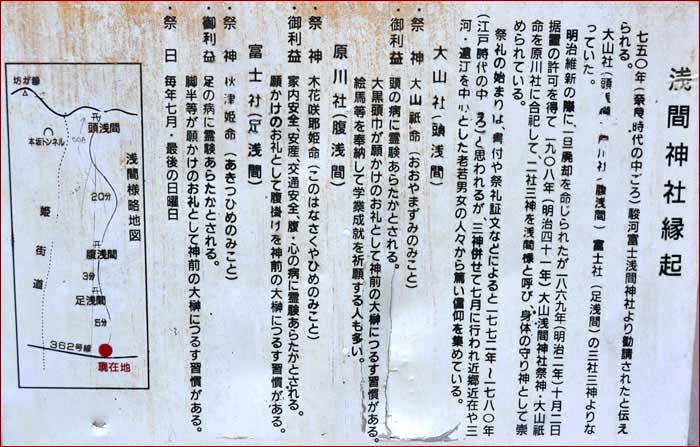 浅間神社縁起
七五〇年(奈良時代の中ごろ)駿河富士浅間神社より勧請されたと伝え
られる。
大山社(頭浅間)原川社(腹浅間)富士社(足浅間)の三社三神よりな
っていた。
明治維新の際に、一旦廃却を命じられたが一八六九年(明治二年)十月二日
据置の許可を得て一九〇八年(明治四十一年)大山浅間神社祭神・大山祇
命を原川社に合祀して、二社三神を浅間様と呼び、身体の守り神として崇
められている。
祭礼の始まりは書付や祭礼証文などによると一七七二年〜一七八〇年
(江戸時代の中ごろ)と思われるが、三神併せて七月に行われ近郷近在や三
河・遠江を中心とした老若男女の人々から篤い信仰を集めている。
大山社(頭浅間)
・祭神 大山祇命(おおやまずみのみこと)
・御利益 頭の病に霊験あらたかとされる。
大黒頭巾が願かけのお礼として神前の大榊につるす習慣がある。
絵馬等を奉納して学業成就を祈願する人も多い。
原川社(腹浅間)
・祭神 木花咲耶姫命(このはなさくやひめのみこと)
・御利益 家内安全、安産、交通安全、腹・心の病に霊験あらたかとされる。
願かけのお礼として腹掛けを神前の大榊につるす習慣がある。
富士社(足浅間)
・祭神 秋津姫命(あきつひめのみこと)
・御利益 足の病に霊験あらたかとされる。
脚半等が願かけのお礼として神前の大榊につるす習慣がある。
・祭日 毎年七月・最後の日曜日
浅間様略地図
坊が峰
頭浅間
本坂トンネル
20分
腹浅間
3分
足浅間
5分
姫街道
362号線
現在地